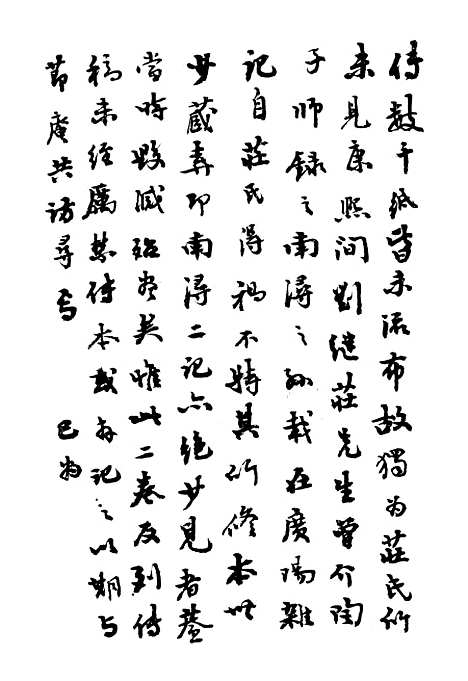 傳數千紙皆未流布故獨为莊氏所
未見康熙间劉继莊先生曾介陶
子师録之南潯之孙載在廣陽雜
記自莊氏得祸不特其所修本世
少藏弆即南潯二記亦绝少見者蓋
當時毁滅殆尽矣惟此二卷反到傳
稿未经厲禁傳本或存記之以期与
節庵共访尋焉